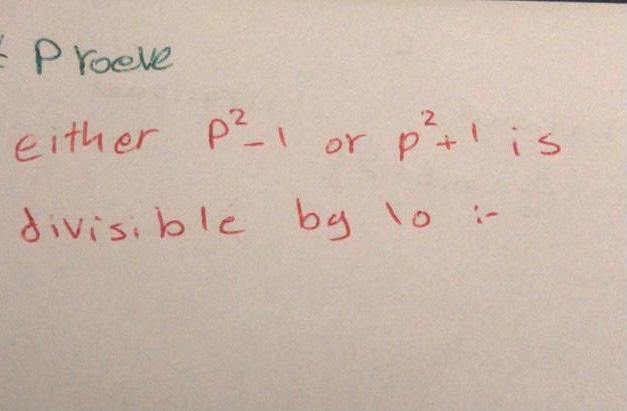 Proeve
either p²-1 or p²+1 is
divisible by 10 :-